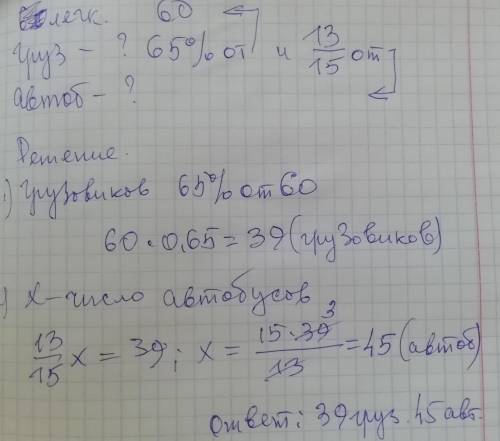 легк. 60
груз - ? 65% от и 13/15 от
автоб - ?
Решение.
) Грузовиков 65% от 60
60 · 0,65 = 39 (грузовиков)
) х - число автобусов
13/15 х = 39; х = 15·39/13 = 45 (автоб)
3
ответ: 39 груз. 45 авт.